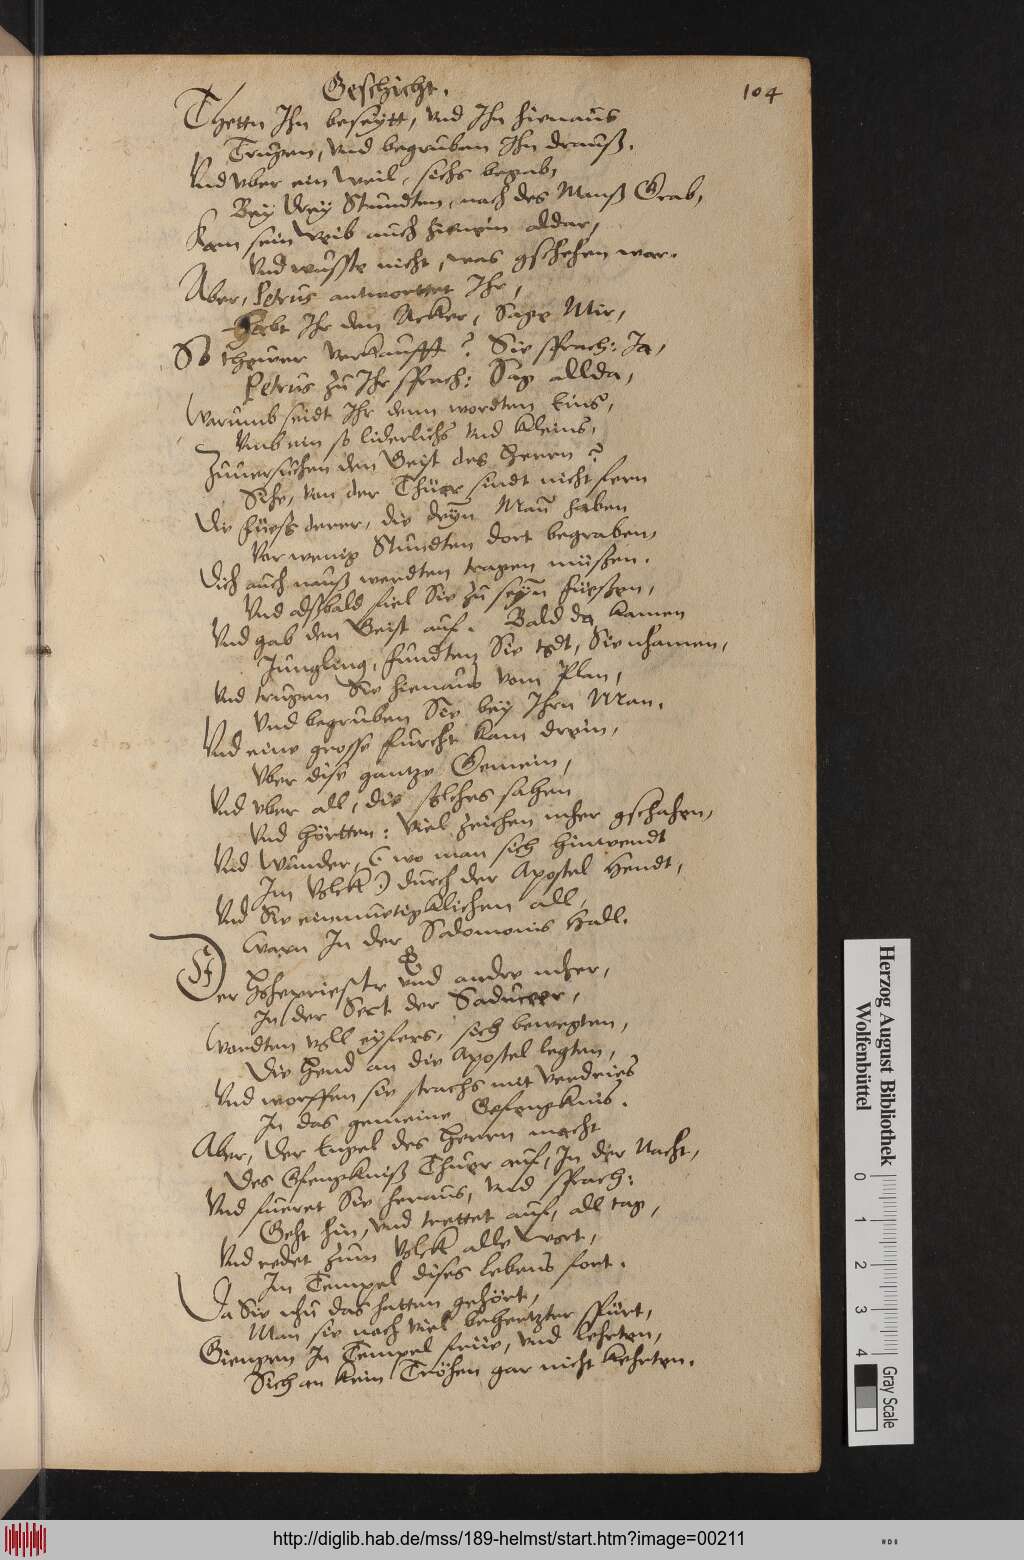 Geschicht.
104
Thetten Ihn beseytt, vnd Ihn hienaus
Trugen, vnd begruben Ihn drauß.
Vnd vber ein Weil, sichs begab,
Bey drey Stundten, nach des Mans Grab,
Kam sein Weib auch hienein aldar,
Vnd wusste nicht, was gschehen war.
Aber, Petrus antworttet Ihr,
Habt Ihr den Acker, Sage Mir,
So thewer verkaufft? Sie sprach: Ja,
Petrus zu Ihr sprach: Sag allda,
Warumb seidt Ihr dann wordten Eins,
Vmb ein so liderlichs vnd kleins,
Zuuersuchen den Geist des Herrn?
Sihe, von der Thüer sindt nicht fern
Die füess derer, die deyn Man haben
Vor wenig Stundten dort begraben,
Dich auch nauß werdten tragen müßen.
Vnd alssbald fiel Sie zu seyn füessen,
Vnd gab den Geist auf. Bald da kamen
Jungling, fundten Sie todt, Sie nhamen,
Vnd trugen Sie hienaus vom Plan,
Vnd begruben Sie bey Ihrn Man.
Vnd eine grosse furcht kam drein,
Vber dise gantze Gemein,
Vnd vber all, die solches sahen
Vnd hörtten: Viel zeichen mher gschahen,
Vnd Wunder, (wo man sich hinwendt
Im Volck) durch der Apostel Hendt,
Vnd Sie einmuetigklichen all,
Warn In der Salomonis Hall.
Der Hohepriester vnd andre mher,
In der Sect der Saduceer,
Wordten voll eyfers, sich bewegten,
Die Hend an die Apostel legten,
Vnd worffen sie strachs mit verdries
In das gemeine Gefengknis.
Aber, der Engel des Herrn macht
Des Gfengkniß Thuer auf, In der Nacht,
Vnd fueret Sie heraus, vnd sprach:
Geht hin, vnd trettet auf, all tag,
Vnd redet zum Volck alle wort,
Im Tempel dises lebens fort.
Da Sie nhu das hatten gehört,
Man sie noch viel behertzter spürt,
Giengen In Tempel frue, vnd lehrten,
Sich an kein Tröhen gar nicht kehrten.
Herzog August Bibliothek
Wolfenbüttel
0 1 2 3 4
Gray Scale
http://diglib.hab.de/mss/189-helmst/start.htm?image=00211